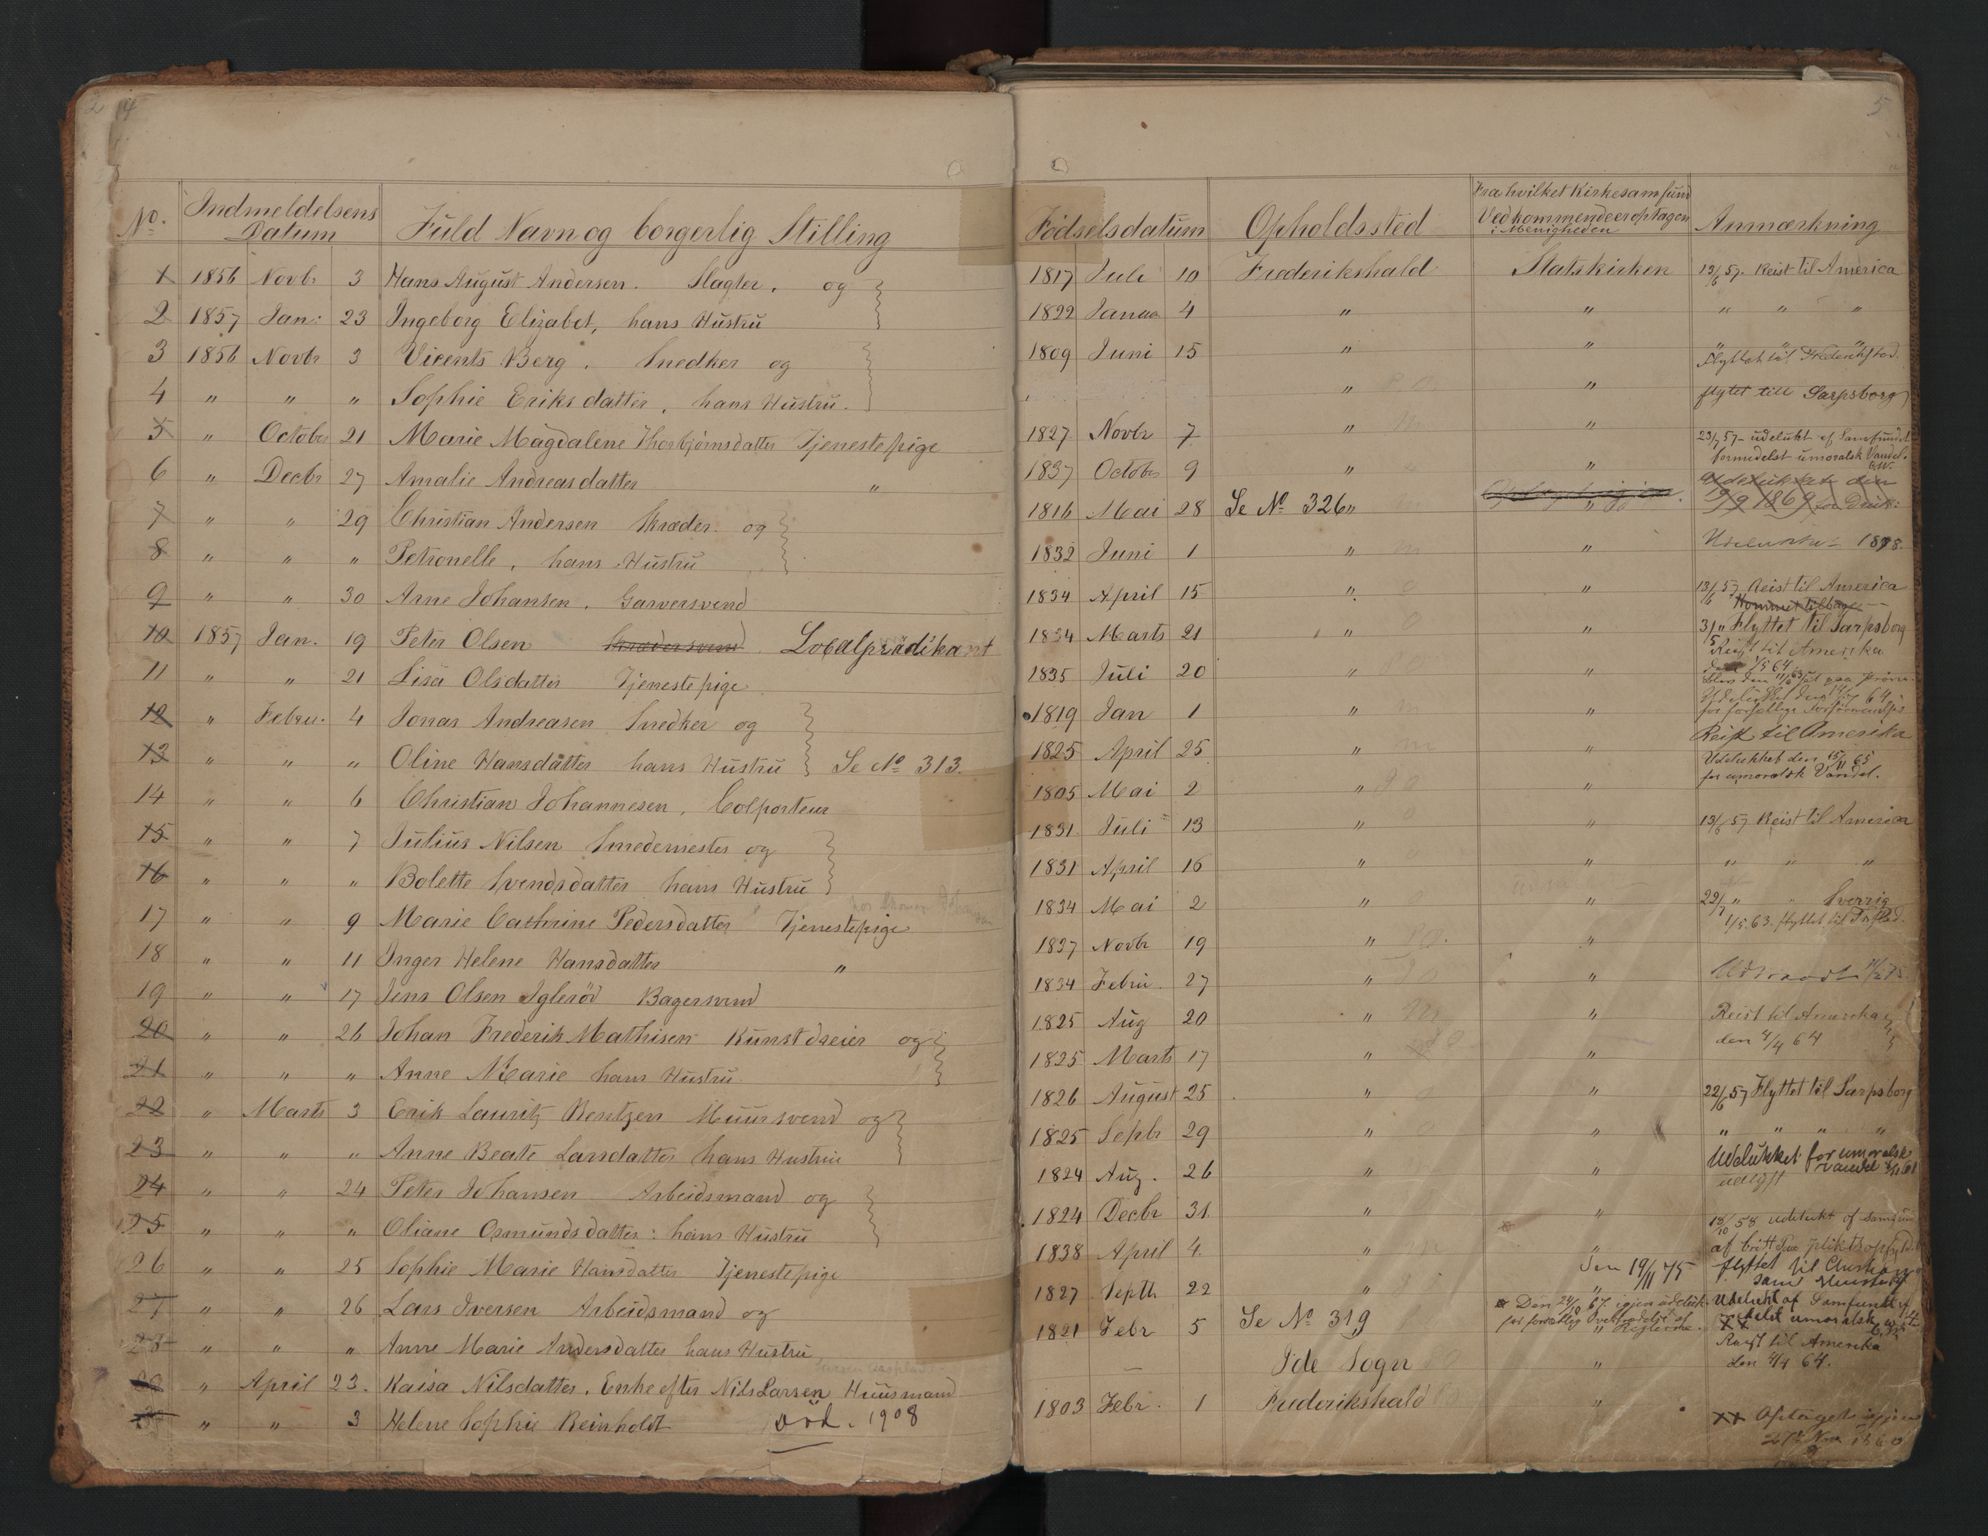 2 4
No. Indmeldelsens Datum Fuld Navn og borgerlig Stilling
1 1856 Novbr 3 Hans August Andersen. Slagter. og
2 1857 Jan: 23 Ingeborg Elizabet, hans Hustru
3 1856 Novbr 3 Vicents Berg. Snedker og
4 " " " Sophie Eriksdatter, hans Hustru.
5 " October 21 Marie Magdalene Thorbjørnsdatter Tjenestepige
6 " Decbr 27 Amalie Andreasdatter "
7 " " 29 Christian Andersen Skræder. og
8 " " " Petronelle, hans Hustru
9 " " 30 Arne Johansen. Garversvend
10 1857 Jan. 19 Peter Olsen Skrædersvend. Localprædikant
11 " " 21 Lisa Olsdatter Tjenestepige
12 " Febru. 4 Jonas Andreasen Snedker og
13 " " " Oline Hansdatter hans Hustru Se No 313.
14 " " 6 Christian Johannesen, Colporteur
15 " " 7 Julius Nilsen Smedemester og
16 " " " Bolette Svendsdatter hans Hustru
17 " " 9 Marie Cathrine Pedersdatter Tjenestepige
18 " " 11 Inger Helene Hansdatter "
19 " " 17 Jens Olsen Iglerød Bagersvend
20 " " 26 Johan Frederik Mathisen Kunstdreier og
21 " " " Anne Marie hans Hustru
22 " Marts 3 Erik Lauritz Bentzen Muursvend og
23 " " " Anne Beate Larsdatter hans Hustru
24 " " 24 Peter Johansen Arbeidsmand og
25 " " " Oliane Osmundsdatter: hans Hustru
26 " " 25 Sophie Marie Hansdatter Tjenestepige
27 " " 26 Lars Iversen Arbeidsmand og
28 " " " Anne Marie Andersdatter hans Hustru
" April 23. Kaisa Nilsdatter, Enke efter Nils Larsen Huusmand
" " 3 Helene Sophie Reinholdt død. 1908
5
Fødselsdatum Opholdssted Fra hvilket Kirkesamfund Vedkommende er optagen i Menigheden Anmærkning
1817 Juli 10 Frederikshald Statskirken 13/6 57. Reist til America
1822 Janua 4 " " " " "
1809 Juni 15 " " Flyttet til Frederikstad.
" " flytet till Sarpsborg
1827 Novbr 7 " " 23/7 57 - udelukt af Samfundet formedelst umoralsk Vandel.
1837 October 9 " "
1816 Mai 28 Se No 326 " " Udelukket den 19/9 1869
1832 Juni 1 " " Udelukket 1878.
1834 April 15 " " 13/6 57 Reist til America Kommet tilbage
1834 Marts 21 " " 31/5 " Flyttet til Sarpsborg
Reist til Amerika
1835 Juli 20 " " den 1/5 64
1819 Jan 1 " "
1825 April 25 " " Reist til Amerika
Udelukket den 15/11 65 for umoralsk Vandel.
1805 Mai 2 " "
1831 Juli 13 " " 13/6 57 Reist til America
1831 April 16 " " " " "
1834 Mai 2 " " 22/7 " " Sverrig
1/5 63. flyttet til
1837 Novbr 19 " "
1834 Febru. 27 " "
1825 Aug 20 " " Reist til Amerika den 4/4 64
1825 Marts 17 " "
1826 August 25 " " 22/6 57 Flyttet til Sarpsborg
1825 Sepbr 29 " " " " " "
1824 Aug. 26 " " Udelukket for umoralsk vandel
1824 Decbr 31 " " 18/10 58 udelukt af Samfun
1838 April 4 " "
Den 19/11 75 flyttet til
1827 Septb 22 " " Udelukt af Samfundet
1821 Febr 5 Se No 319 * Den 24/10 67. igjen udeluk for forsætlig Overtrædelse af Reglerne.
Ide Sogn " Reist til Amerika den 4/4 64.
1803 Febr. 1 Frederikshald "
xx Optaget igjen